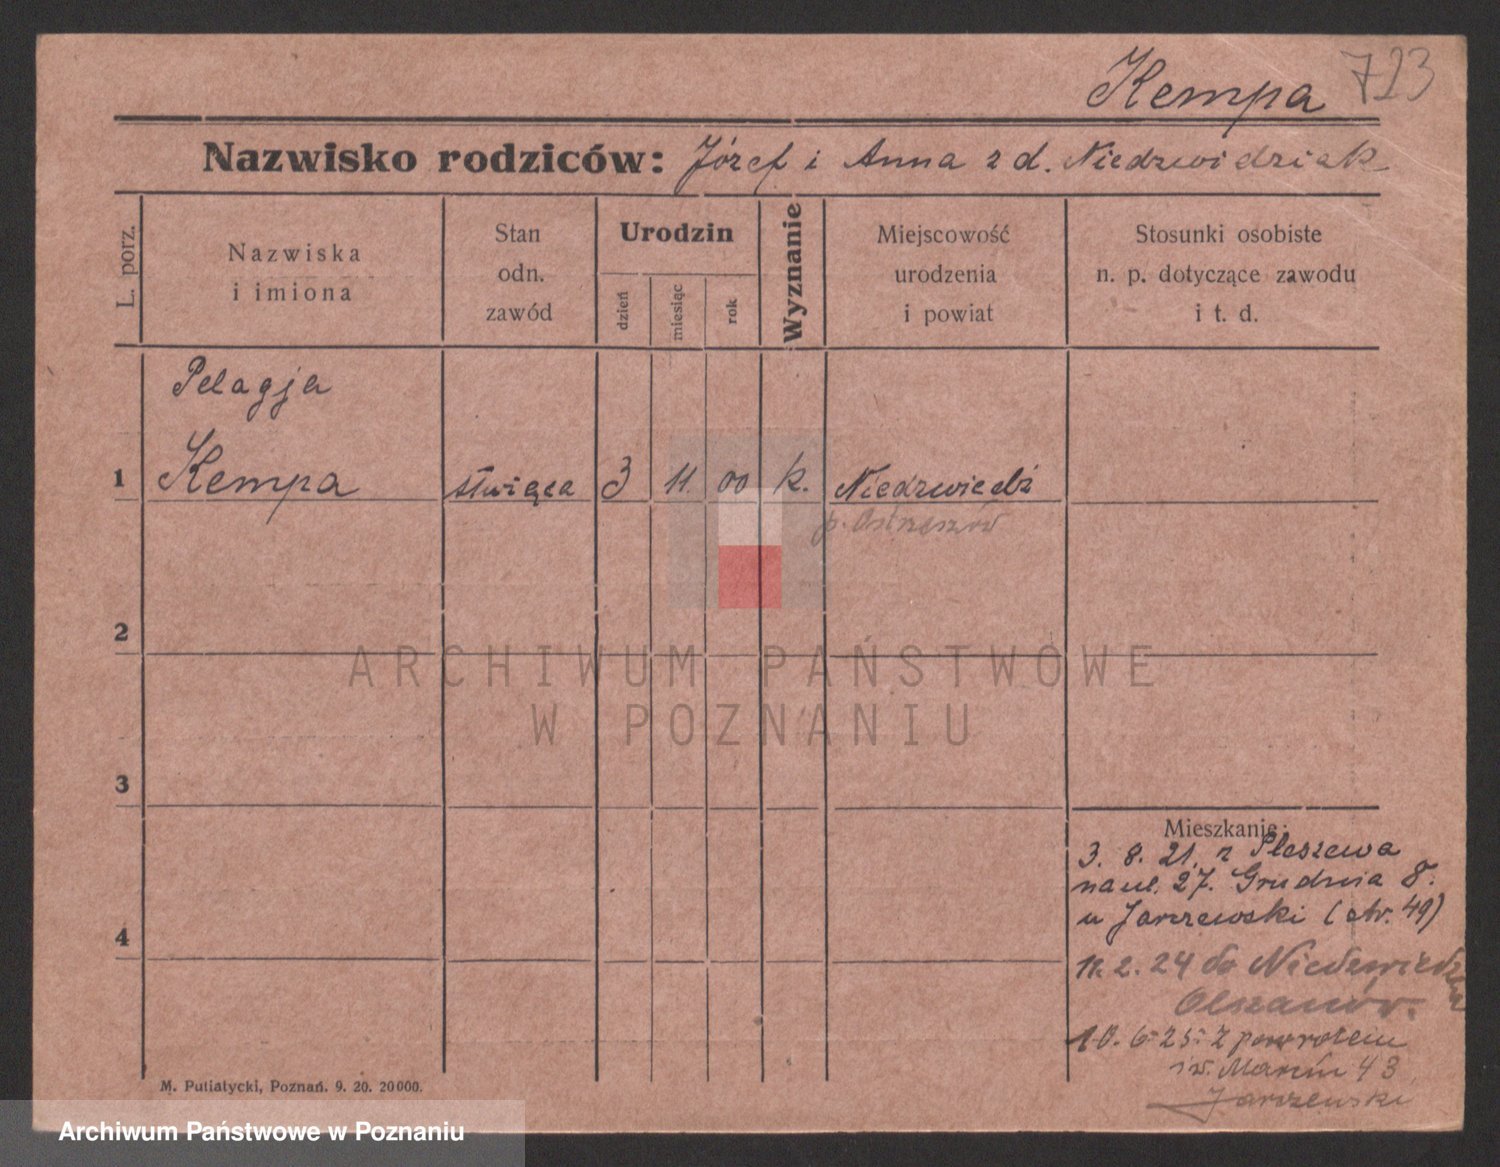 Kempa 723
Nazwisko rodziców: Józef i Anna z d. Niedzwiedziak
L. porz.
Nazwiska
i imiona
Stan
odn.
zawód
Urodzin
dzień
miesiąc
rok
Wyznanie
Miejscowość
urodzenia
i powiat
Stosunki osobiste
n. p. dotyczące zawodu
i t. d.
Pelagja
1 Kempa służąca 3 11. 00 k. Niedzwiedź
p. Ostrzeszów
2
ARCHIWUM PAŃSTWOWE
W POZNANIU
3
Mieszkanie:
3. 8. 21. z Pleszewa
na ul. 27. Grudnia 8.
u Jarzewski (str. 49)
4
2. 24 do Niedzwiedzia
10. 6. 25. z powrotem
św. Marcin 43
Jarzewski
M. Putiatycki, Poznań. 9. 20. 20000.
Archiwum Państwowe w Poznaniu